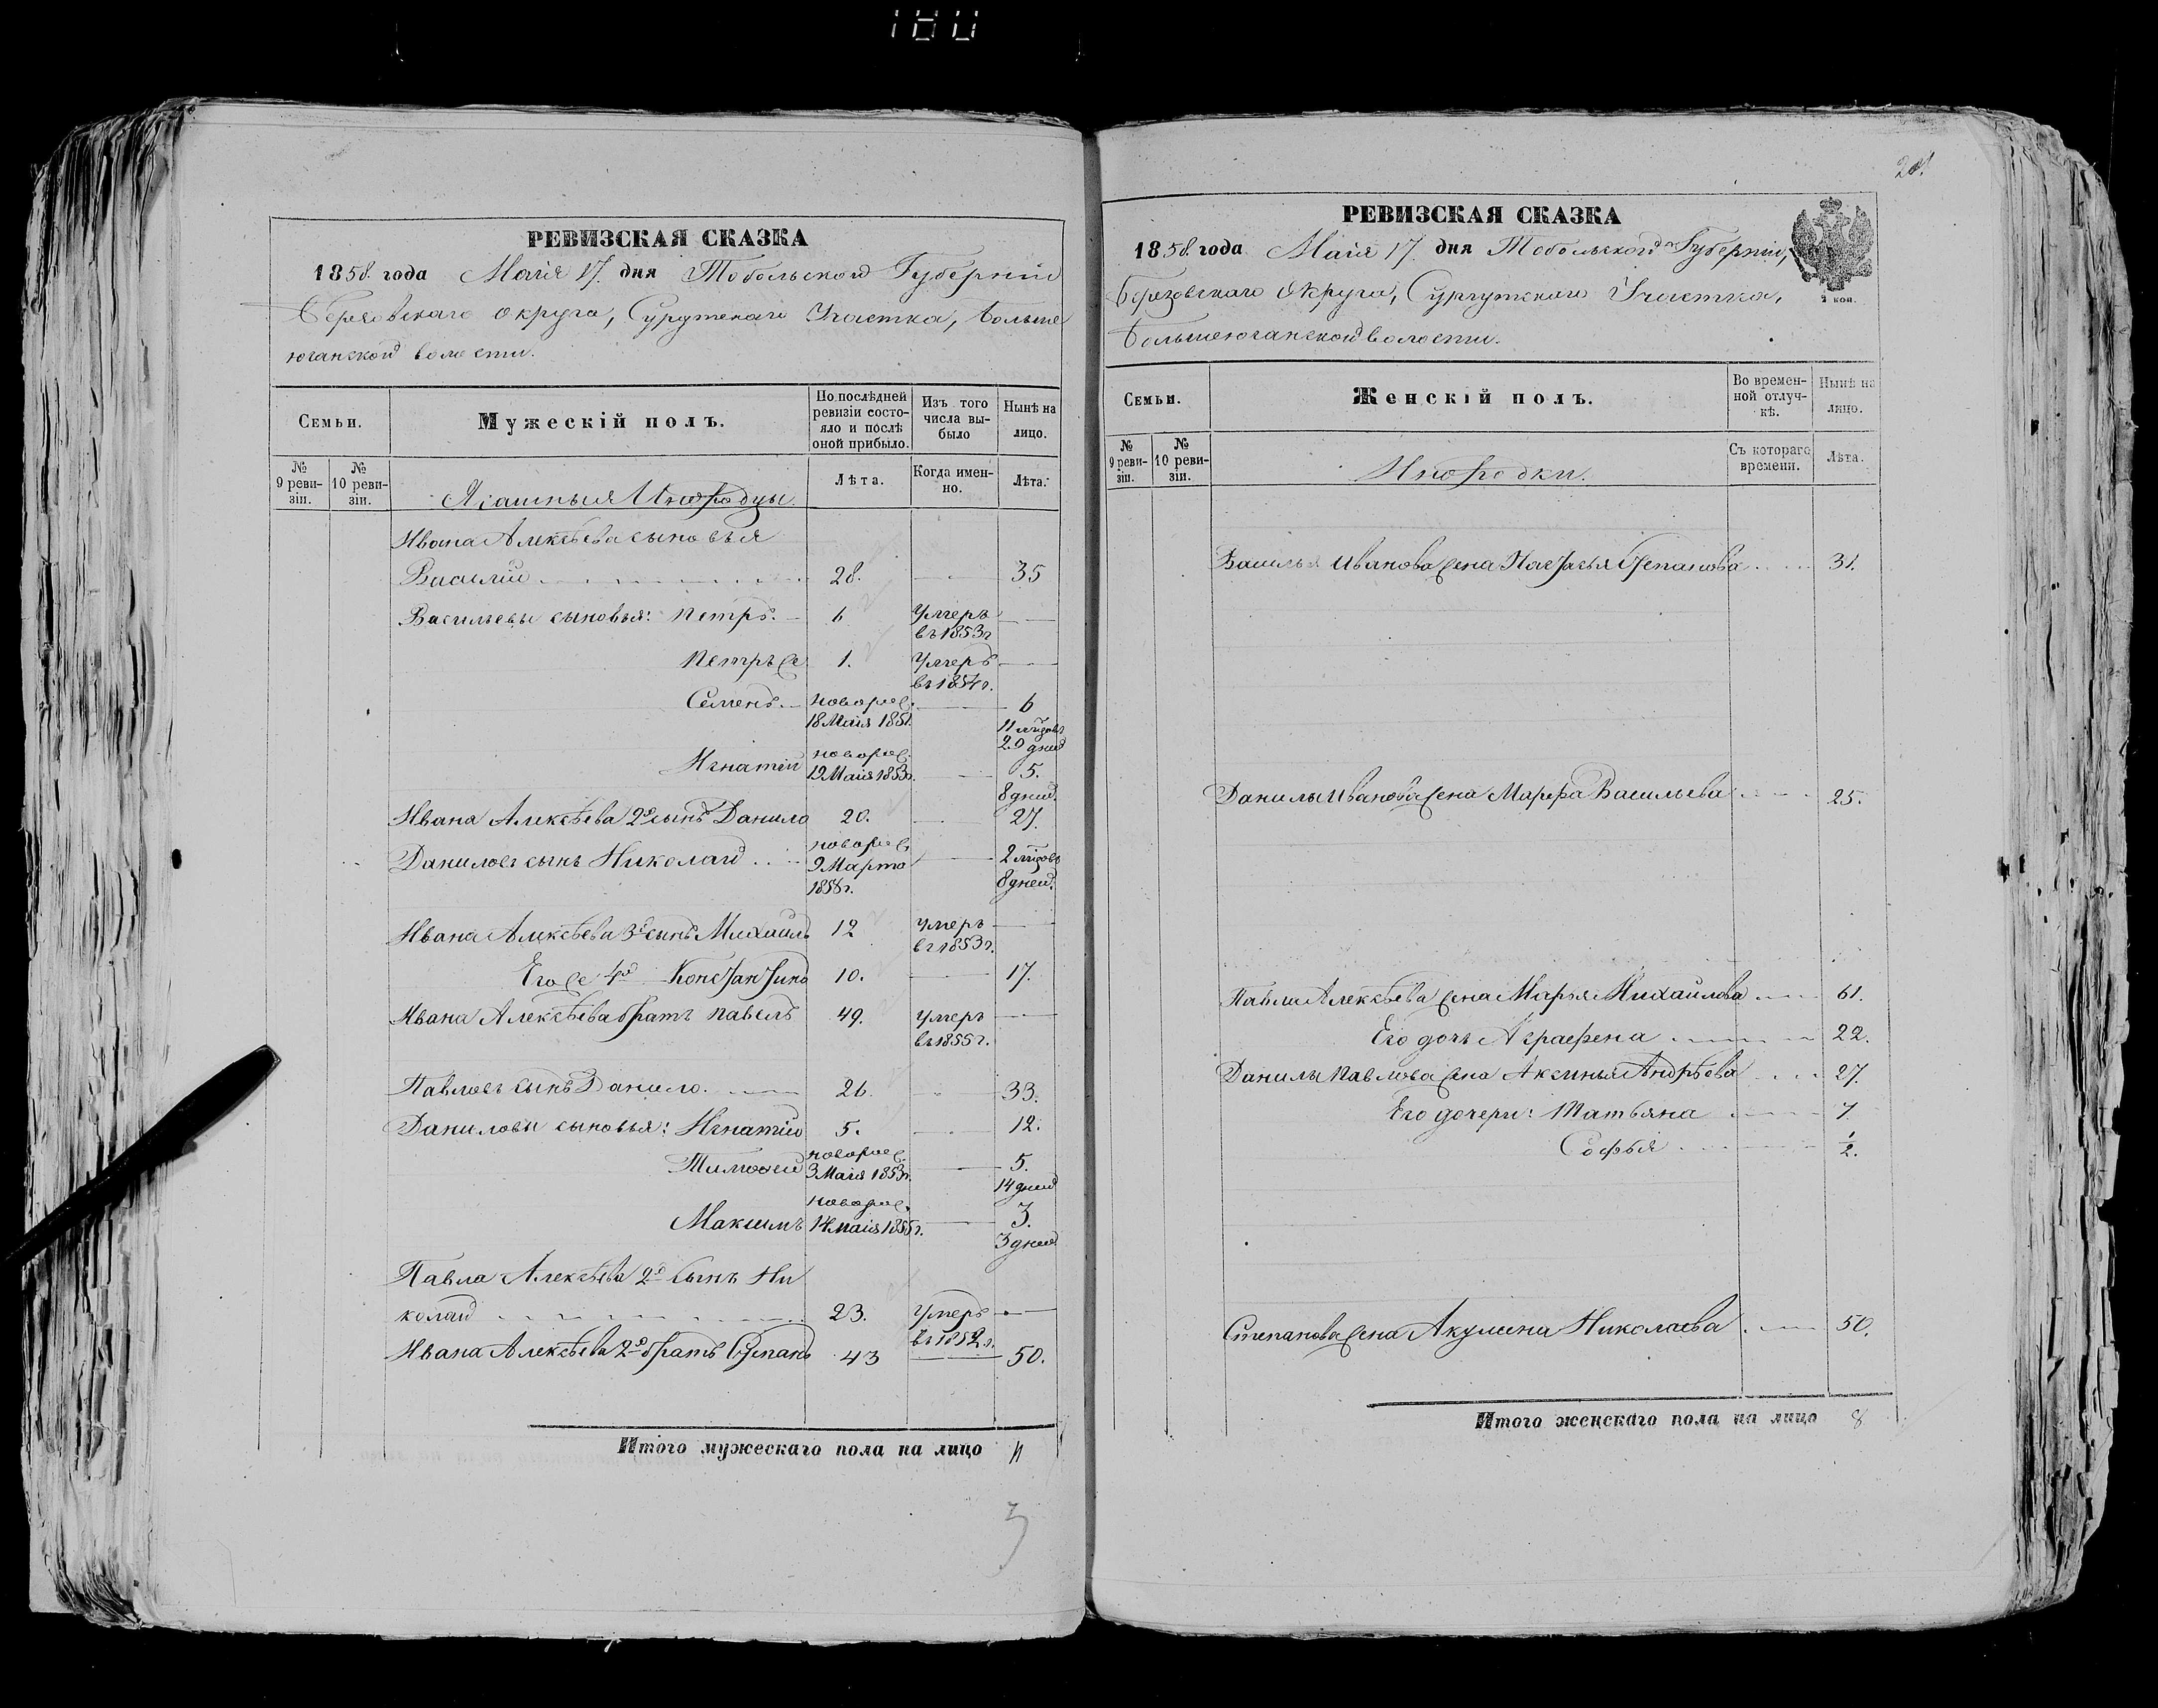 180
РЕВИЗСКАЯ СКАЗКА
1858. года Маія 17. дня Тобольской Губерніи
Березовскаго округа, Сургутскаго Участка, Больше
юганской волости.
Семьи.
Мужескій полъ.
По послѣдней ревизіи состо-яло и послѣ оной прибыло.
Изъ того числа вы-было
Нынѣ на лицо.
№ 9 реви-зіи.
№ 10 реви-зіи.
Ясашныя Инородцы.
Лѣта.
Когда имен-но.
Лѣта.
Ивана Алексѣева сыновья
Василій 28. 35
Васильевы сыновья: Петръ. 6 Умеръ въ 1853 г
Петръ же 1. Умеръ въ 1854 г.
Семенъ новорож. 18 Маія 1851. 6 11 мѣсяцовъ 29 дней
Игнатій новорож. 19 Маія 1853 г. 5. 8 дней.
Ивана Алексѣева 2й сынъ Данило 20. 27.
Даниловъ сынъ Николай новорож. 9 Марта 1858 г. 2 мѣсяцовъ 8 дней.
Ивана Алексѣева 3й сынъ Михаилъ 12 Умеръ въ 1853 г.
Его же 4й Константинъ 10. 17.
Ивана Алексѣева братъ Павелъ 49. Умеръ въ 1855 г.
Павловъ сынъ Данило. 26. 33.
Даниловы сыновья: Игнатій 5. 12.
Тимофей новорож. 3 Маія 1853 г. 5. 14 дней
Максимъ новорож. 14 маія 1855 г. 3. 3 дней
Павла Алексѣева 2й сынъ Ни
колай 23. Умеръ въ 1852 г.
Ивана Алексѣева 2й братъ Степанъ 43 50.
Итого мужескаго пола на лицо 11
РЕВИЗСКАЯ СКАЗКА
1858. года Маія 17. дня Тобольской Губерніи,
Березовскаго Округа, Сургутскаго Участка,
Большеюганской волости.
2 коп.
Семьи.
Женскій полъ.
Во времен-ной отлуч-кѣ.
Нынѣ на лицо.
№ 9 реви-зіи.
№ 10 реви-зіи.
Инородки.
Съ котораго времени.
Лѣта.
Василья Иванова жена Настасья Степанова 31.
Данилы Иванова жена Марфа Васильева 25.
Павла Алексѣева жена Марья Михайлова 61.
Его дочь Аграфена 22.
Данилы Павлова жена Аксинья Андрѣева 27.
Его дочери: Татьяна 7
Софья 1/2.
Степанова жена Акулина Николаева 50.
Итого женскаго пола на лицо 8